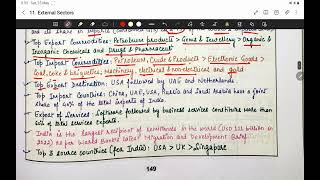 11. External Sectors
and its share in imports (consumer
Top Export Commodities: Petroleum products > Gems & Jewellery > Organic & Inorganic Chemicals and Drugs & Pharmaceut
Top Import Commodities: Petroleum, Crude & Products > Electronic Goods >
Coal, coke & briquettes, Machinery, electrical & non-electrical and gold
Top Export Destination: USA followed by UAE and Netherlands
Top Import Countries: China, UAE, USA, Russia and Saudi Arabia have a joint
share of 40% of the total imports of India.
Export of Services: Software followed by business services constitute more than
60% of total services exports.
India is the largest recipient of remittances in the world (USD
billion in
2022) as per World Bank's latest Migration and Development Brief
Top 3 source countries (for India): USA > UK > Singapore
149